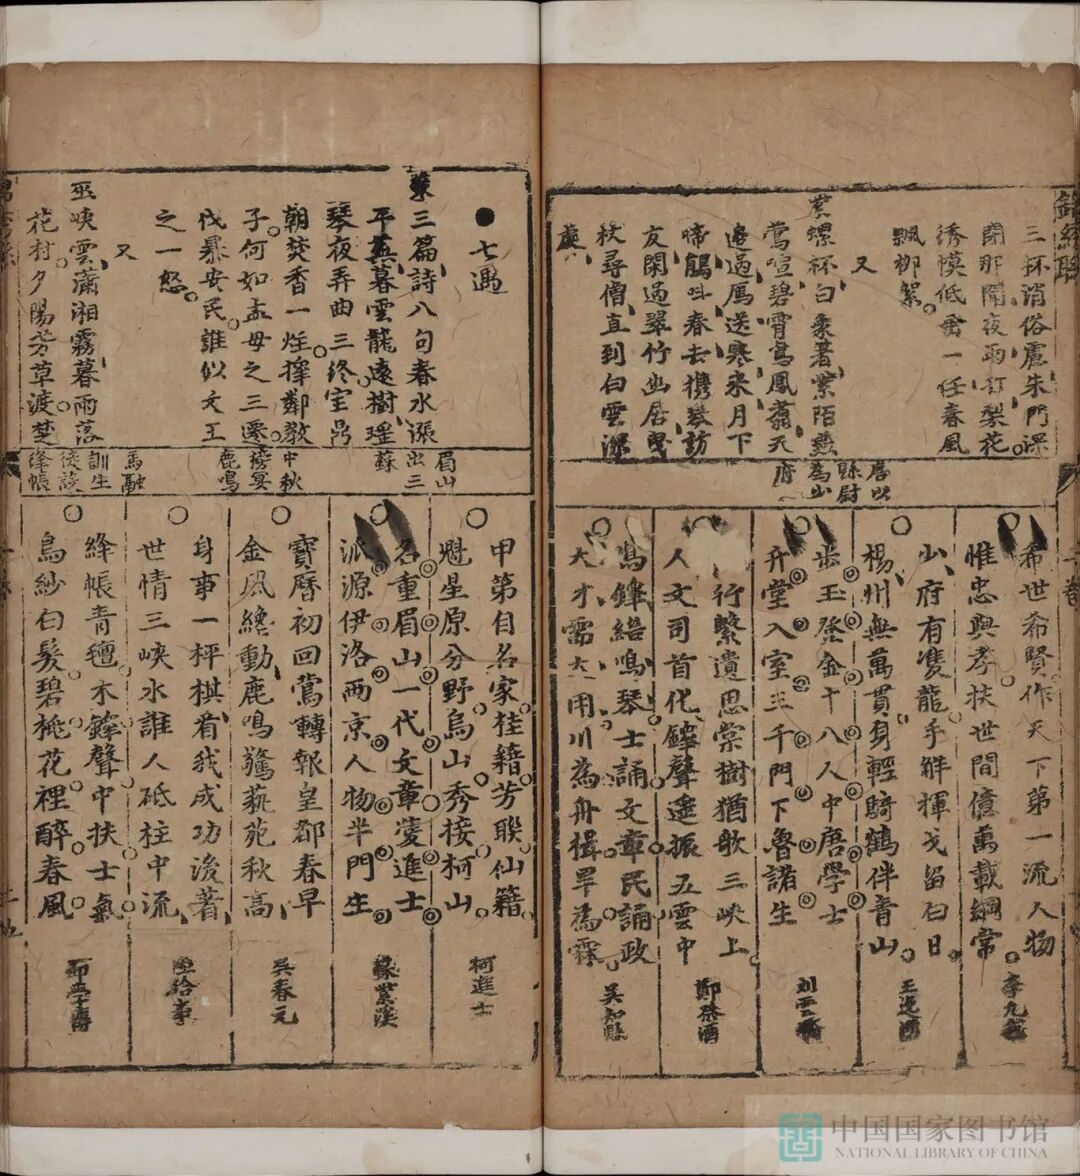 三杯消俗慮朱門深
閉那聞夜雨打梨花
綉幙低垂一任春風
飄柳絮
又
螺杯白象著紫陌
鶯喧碧霄鳳翥天
邊過鴈送寒來月下
啼鵑呌春去携琴訪
友閑過翠竹幽居曳
杖尋僧直到白雲深
處
縣尉
為少
府
希世希賢作天下第一流人物
惟忠與孝扶世間億萬載綱常
少府有隻龍手觧揮戈留白日
楊州無萬貫身輕騎鶴伴青山
步玉登金十八人中唐學士
升堂入室三千門下魯諸生
行繫遺思棠樹猶歌三峽上
人文司首化鐸聲遙振五雲中
鳴琴士誦文章民誦政
大才需大用川為舟楫旱為霖
吳知縣
●七遇
三篇詩八句春水漲
平蕪暮雲籠遠樹瑤
琴夜弄曲三終寶鼎
朝焚香一炷擇鄰教
子何如孟母之三遷
伐暴安民誰似文王
之一怒
又
巫峽雲瀟湘霧暮雨落
花村夕陽芳草渡楚
眉山
出三
蘇
中秋
榜宴
鹿鳴
馬融
訓生
徒設
絳帳
甲第自名家桂籍芳聯仙籍
魁星原分野烏山秀接柯山
名重眉山一代文章雙進士
派源伊洛兩京人物半門生
寶曆初回鶯轉報皇都春早
金風纔動鹿鳴驚藝苑秋高
身事一枰棋着我成功後著
世情三峽水誰人砥柱中流
絳帳青氊木鐸聲中扶士氣
烏紗白髮碧桃花裡醉春風
柯進士
吳春元